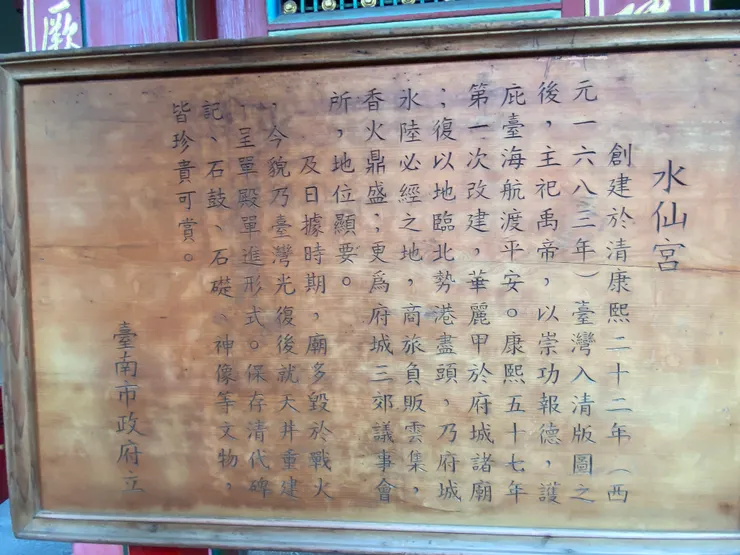 水仙宮
創建於清康熙二十二年（西
元一六八三年）臺灣入清版圖之
後，主祀禹帝，以崇功報德，護
庇臺海航渡平安。康熙五十七年
第一次改建，華麗甲於府城諸廟
；復以地臨北勢港盡頭，乃府城
水陸必經之地，商旅負販雲集，
香火鼎盛；更為府城三郊議事會
所，地位顯要。
及日據時期，廟多毀於戰火
，今貌乃臺灣光復後就天井重建
，呈單殿單進形式。保存清代碑
記、石鼓、石礎、神像等文物，
皆珍貴可賞。
臺南市政府立